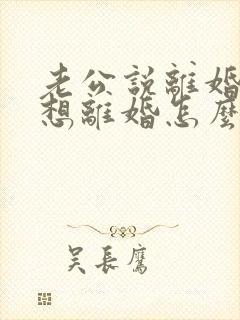 老公說離婚
想離婚怎麼
吳長鷹